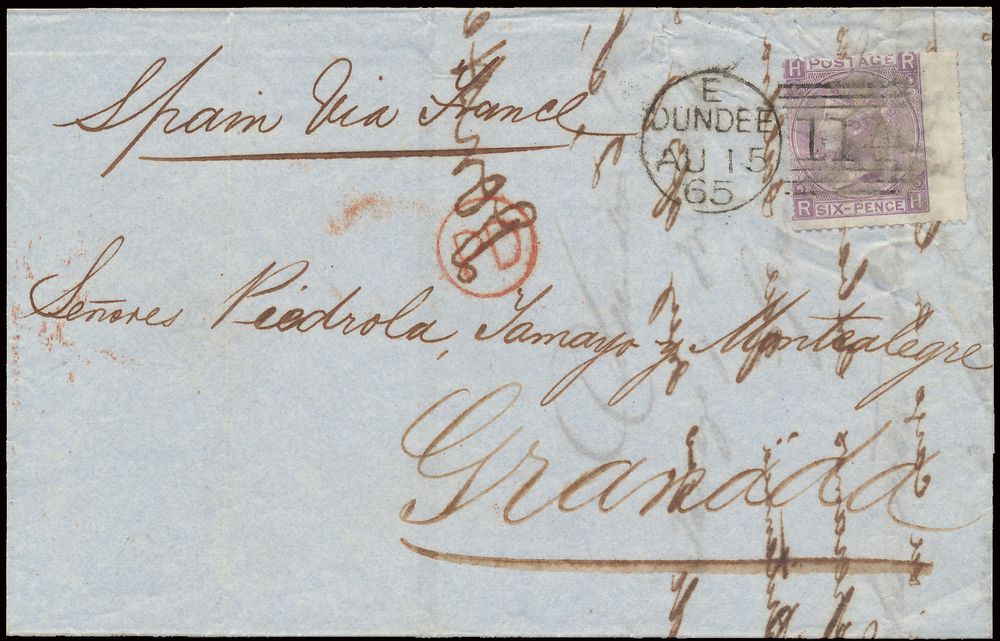 Spain Via France
E
DUNDEE
AU 15
65
H POSTAGE R
114
R SIX-PENCE H
PD
Señores Piedrola, Tamayo y Montealegre
Granada